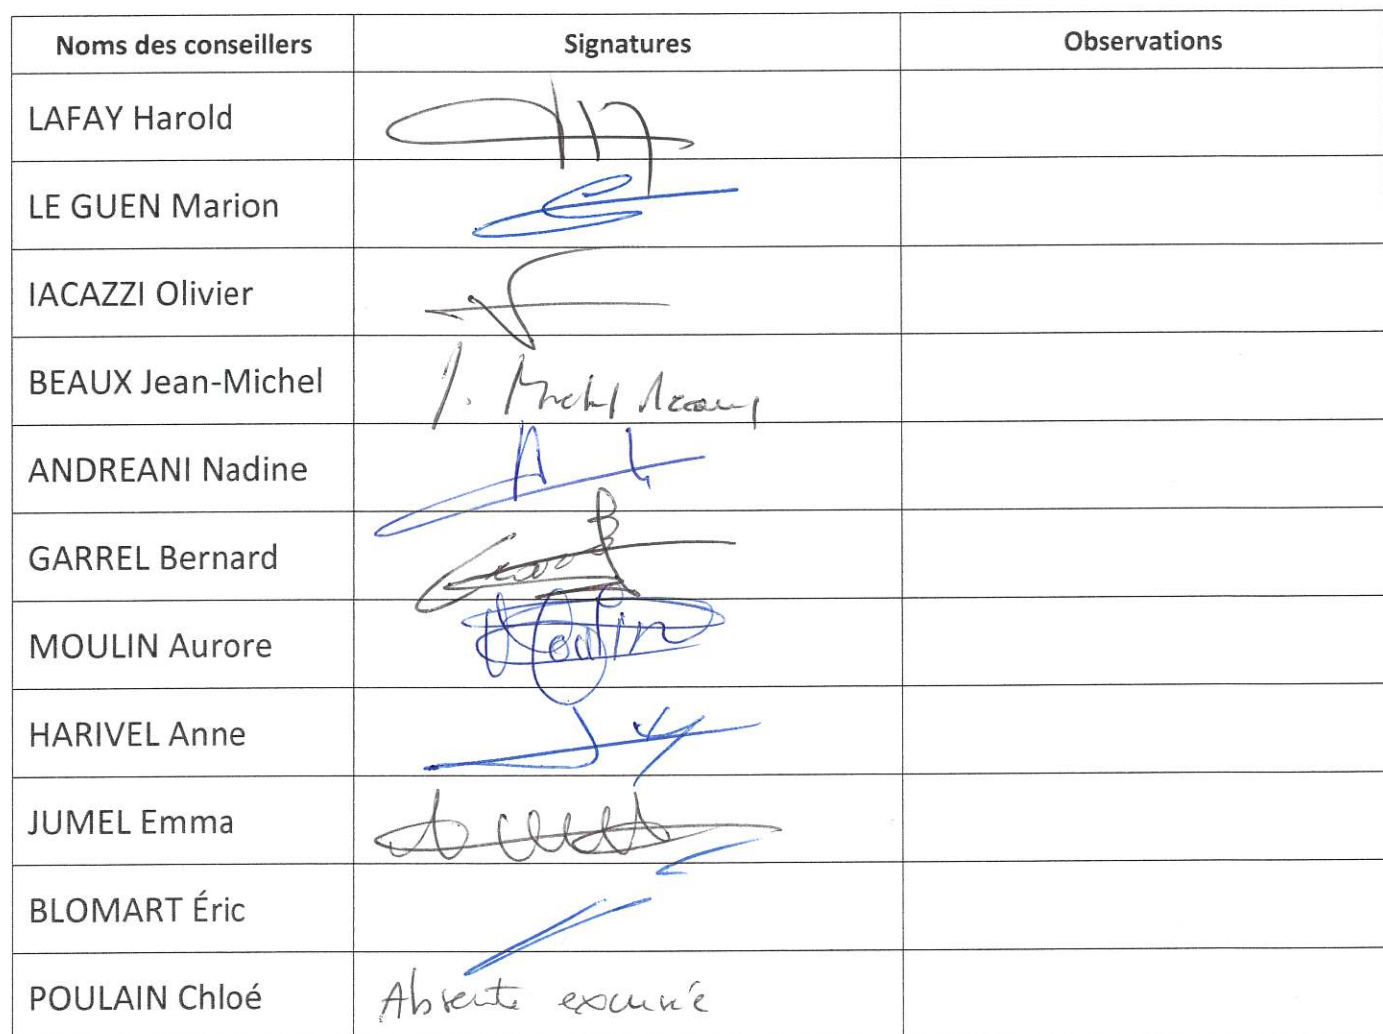 Noms des conseillers Signatures Observations
LAFAY Harold
LE GUEN Marion
IACAZZI Olivier
BEAUX Jean-Michel J. Michel
ANDREANI Nadine
GARREL Bernard
MOULIN Aurore Moulin
HARIVEL Anne
JUMEL Emma
BLOMART Éric
POULAIN Chloé Absente excusée